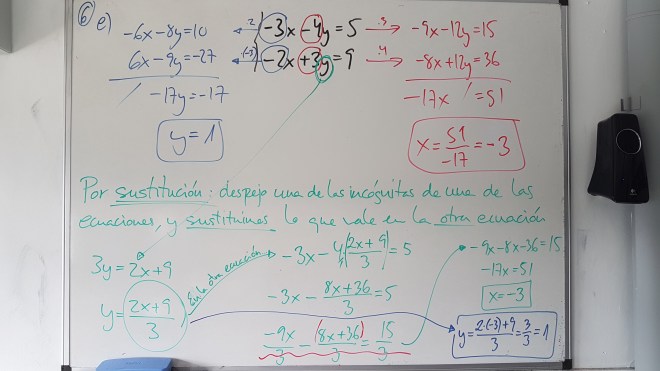 6 e)
-6x-8y=10 ·2 -3x-4y=5 ·3 -9x-12y=15
6x-9y=-27 ·(-3) -2x+3y=9 ·4 -8x+12y=36
/ -17y=-17 -17x / =51
y=1 x=51/-17=-3
Por sustitución: despejo una de las incógnitas de una de las
ecuaciones, y sustituimos lo que vale en la otra ecuación
3y=2x+9 En la otra ecuación -3x-4(2x+9/3)=5 -9x-8x-36=15
-17x=51
y=2x+9/3 -3x-8x+36/3=5 x=-3
-9x/3-(8x+36)/3=15/3 y=2·(-3)+9/3=3/3=1